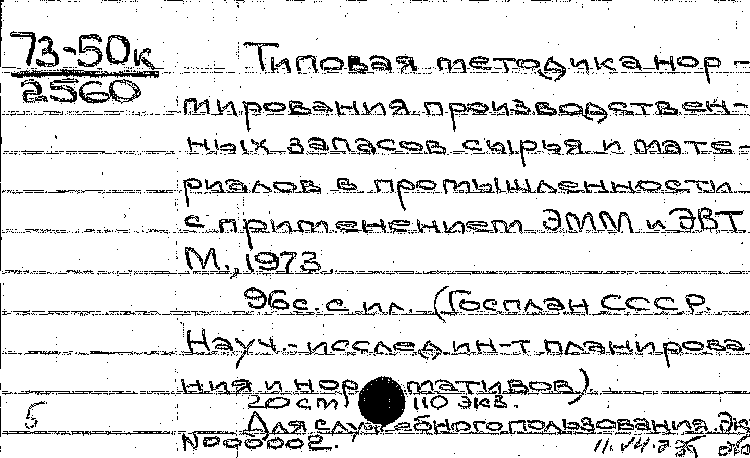 73-50к
2560
Типовая методика нор-
мирования производствен-
ных запасов сырья и мате-
риалов в промышленности
с применением ЭММ и ЭВТ
М., 1973.
96с. с ил. (Госплан СССР.
Науч.-исслед ин-т планирова
ния и нор мативов)
20 cm 110 экз.
5
Для служебного пользования. Экз
N000002.